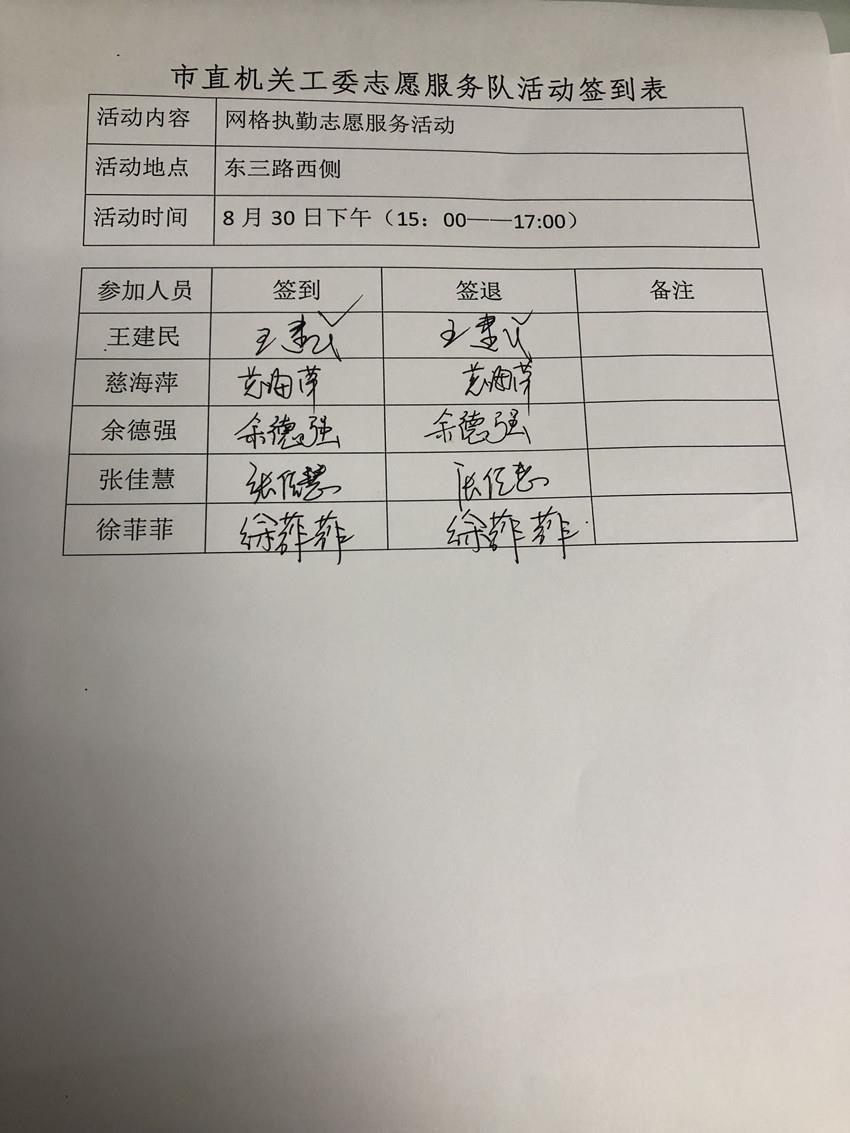 市直机关工委志愿服务队活动签到表
活动内容 网格执勤志愿服务活动
活动地点 东三路西侧
活动时间 8月30日下午（15：00——17:00）
参加人员 签到 签退 备注
王建民 王建民 王建民
慈海萍 慈海萍 慈海萍
余德强 余德强 余德强
张佳慧 张佳慧 张佳慧
徐菲菲 徐菲菲 徐菲菲